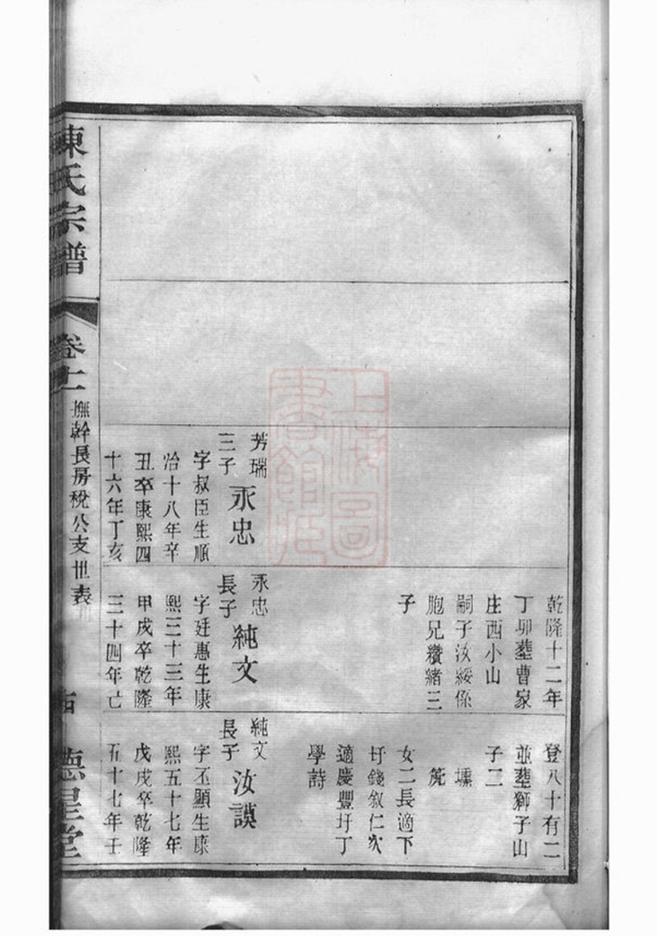 芳瑞
三子
永忠
字叔臣生順
治十八年辛
丑卒康熙四
十六年丁亥
乾隆十二年
丁卯塟曹家
庄西小山
嗣子汝綏係
胞兄纘緒三
子
永忠
長子
純文
字廷惠生康
熙三十三年
甲戌卒乾隆
三十四年亡
登八十有二
並塟獅子山
子二
壎
箎
女二長適下
圩錢叙仁次
適慶豐圩丁
學詩
純文
長子
汝謨
字丕顯生康
熙五十七年
戊戌卒乾隆
五十七年壬
陳氏宗譜
卷十一
撫幹長房稅公支世表
德星堂
上海圖
書館藏